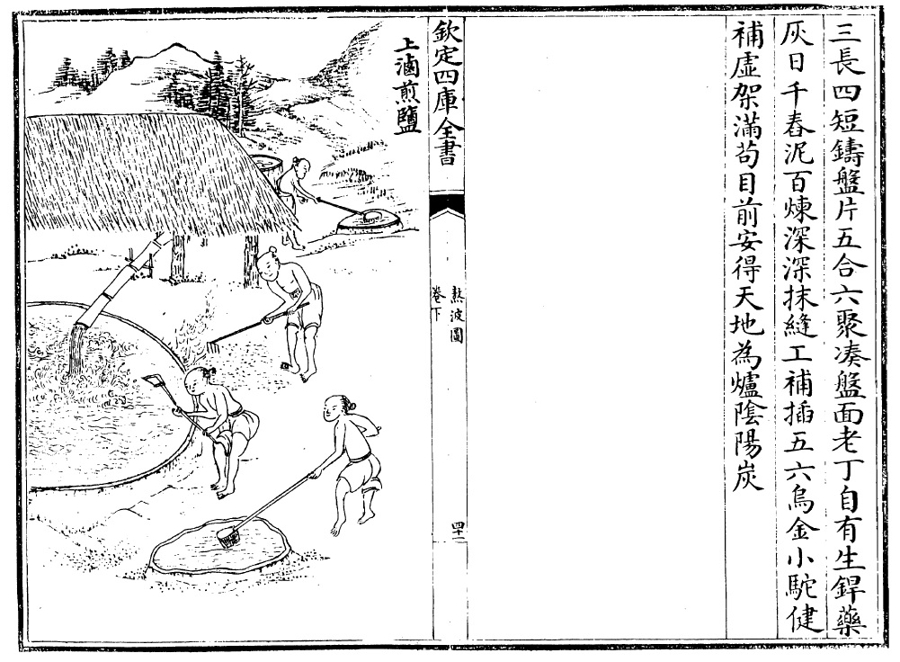 三長四短鑄盤片五合六聚湊盤面老丁自有生銲藥
灰日千舂泥百煉深深抹縫工補插五六烏金小駝健
補虛架滿苟目前安得天地為爐陰陽炭
欽定四庫全書
熬波圖
卷下
四十一
上滷煎鹽